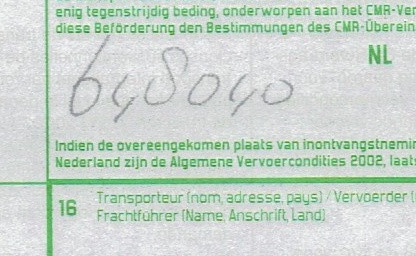 enig tegenstrijdig beding, onderworpen aan het CMR-Ver
diese Beförderung den Bestimmungen des CMR-Überein
NL
648040
Indien de overeengekomen plaats van inontvangstnemin
Nederland zijn de Algemene Vervoercondities 2002, laats
16 Transporteur (nom, adresse, pays) / Vervoerder (
Frachtführer (Name, Anschrift, Land)